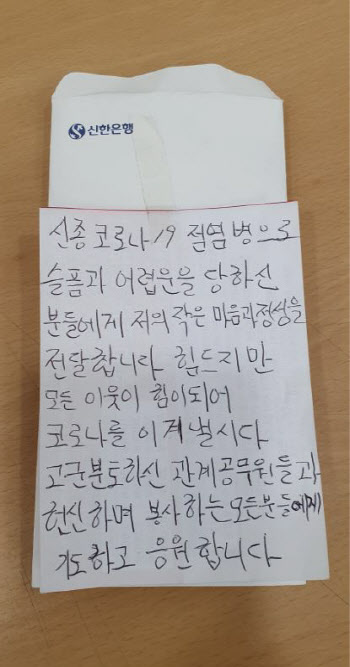 신한은행
신종코로나19 점염병으로
슬픔과 어렵운을 당하신
분들에게 저의 작은 마음과정성을
전달합니다 힘드지만
모든 이웃이 힘이되어
코로나를 이겨냅시다
고군분토하신 관계공무원들과
헌신하며 봉사하는모든분들에게
기도하고 응원합니다